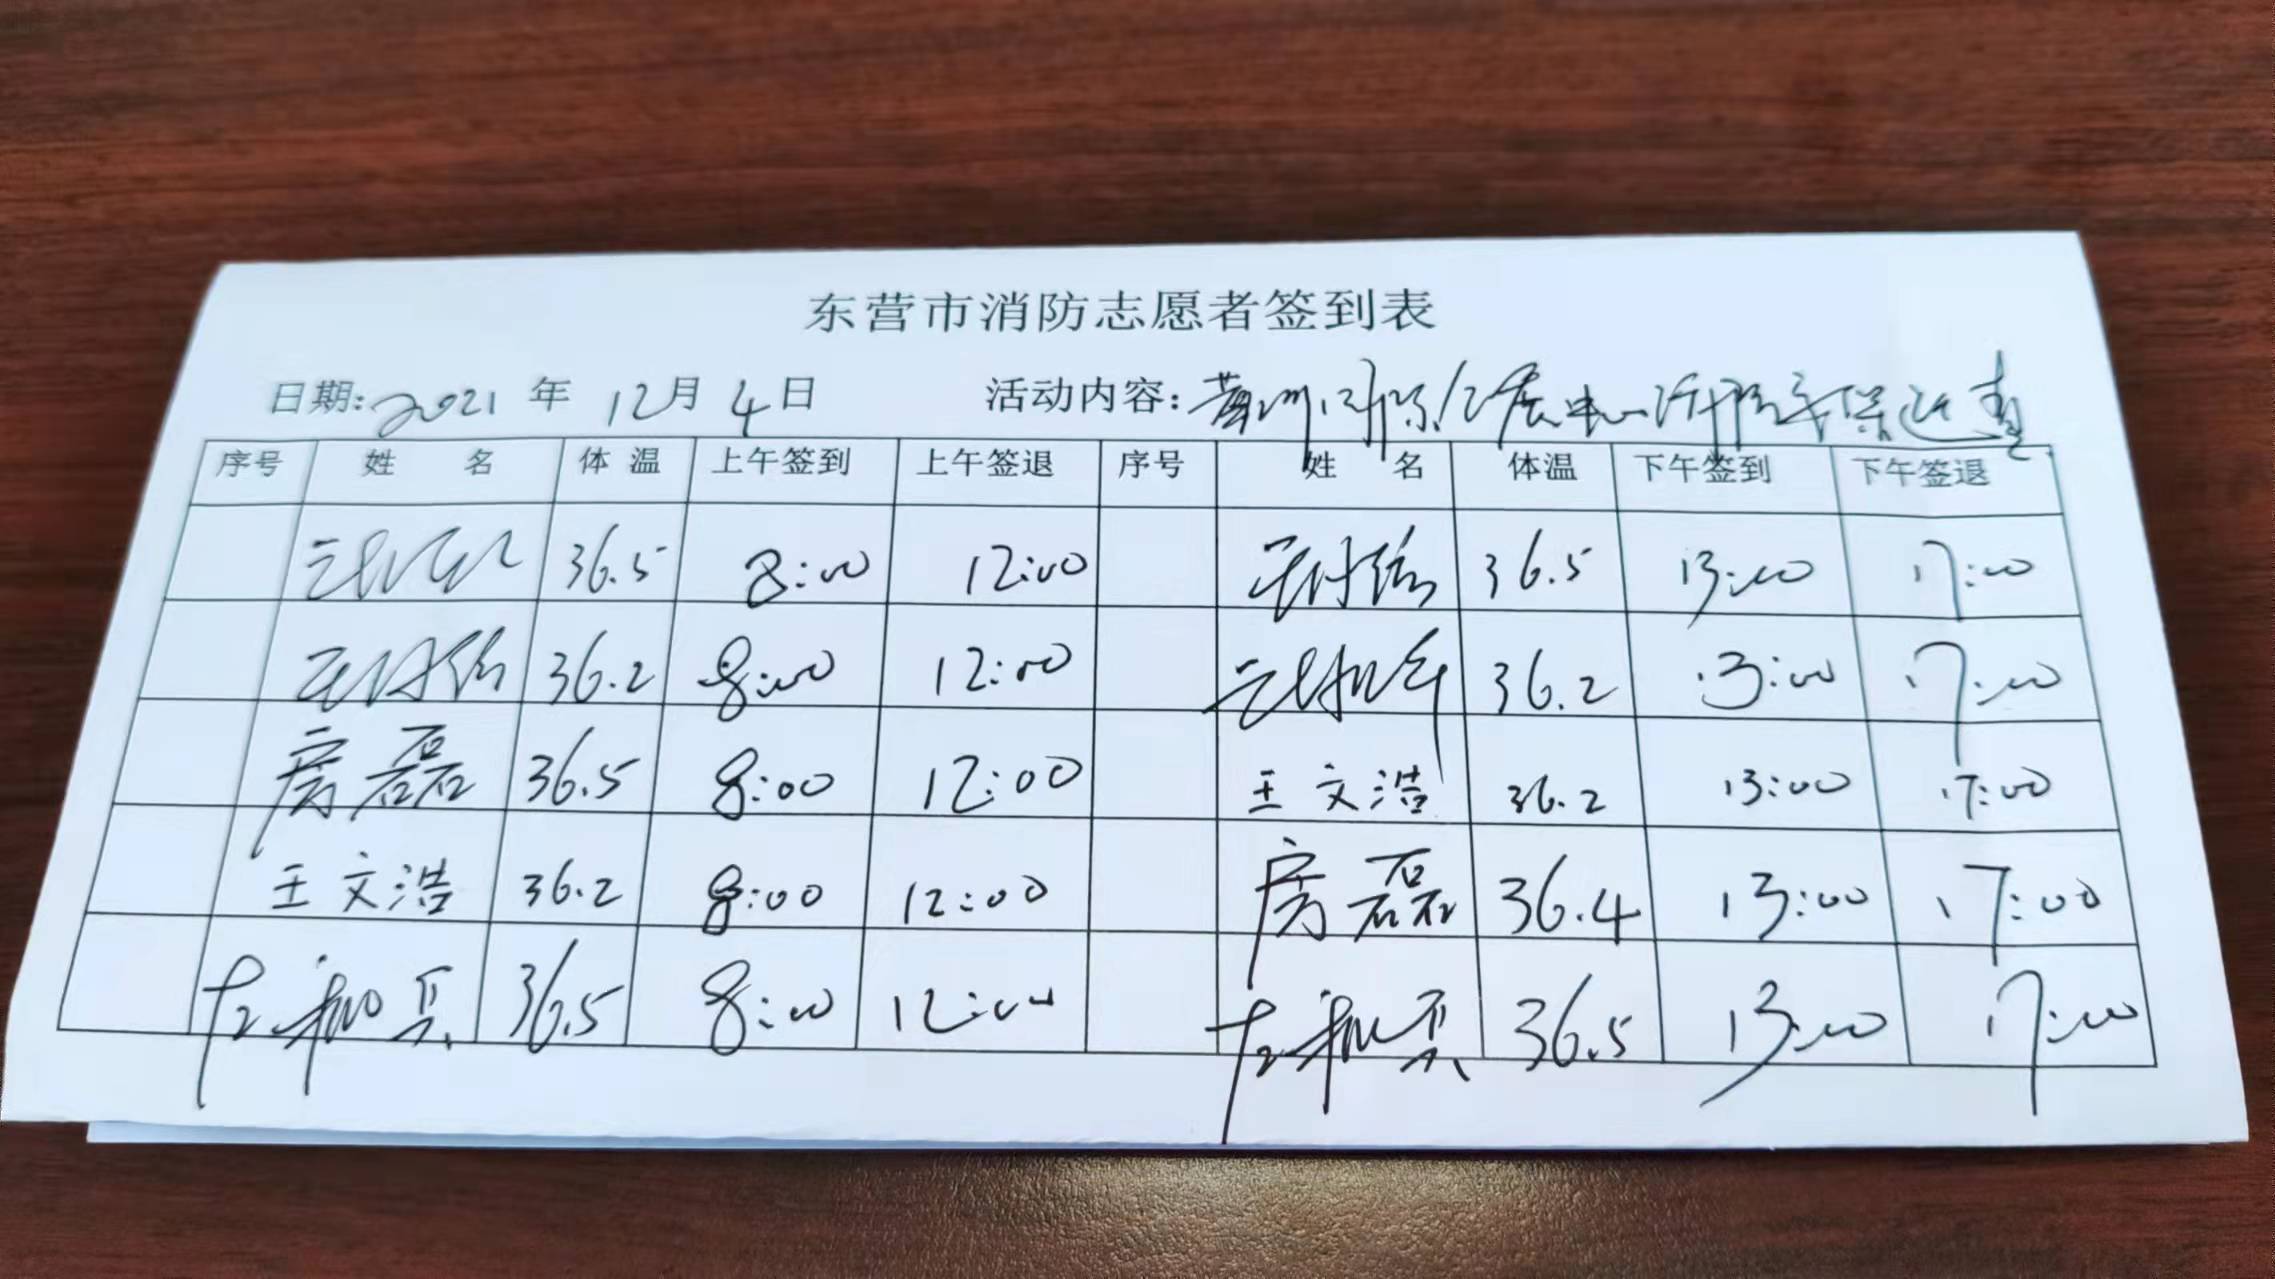 东营市消防志愿者签到表
日期: 2021 年 12月 4日 活动内容:
序号 姓 名 体 温 上午签到 上午签退 序号 姓 名 体温 下午签到 下午签退
36.5 8:00 12:00 36.5 13:00 17:00
36.2 8:00 12:00 36.2 13:00 17:00
房磊 36.5 8:00 12:00 王文浩 36.2 13:00 17:00
王文浩 36.2 8:00 12:00 房磊 36.4 13:00 17:00
36.5 8:00 12:00 36.5 13:00 17:00